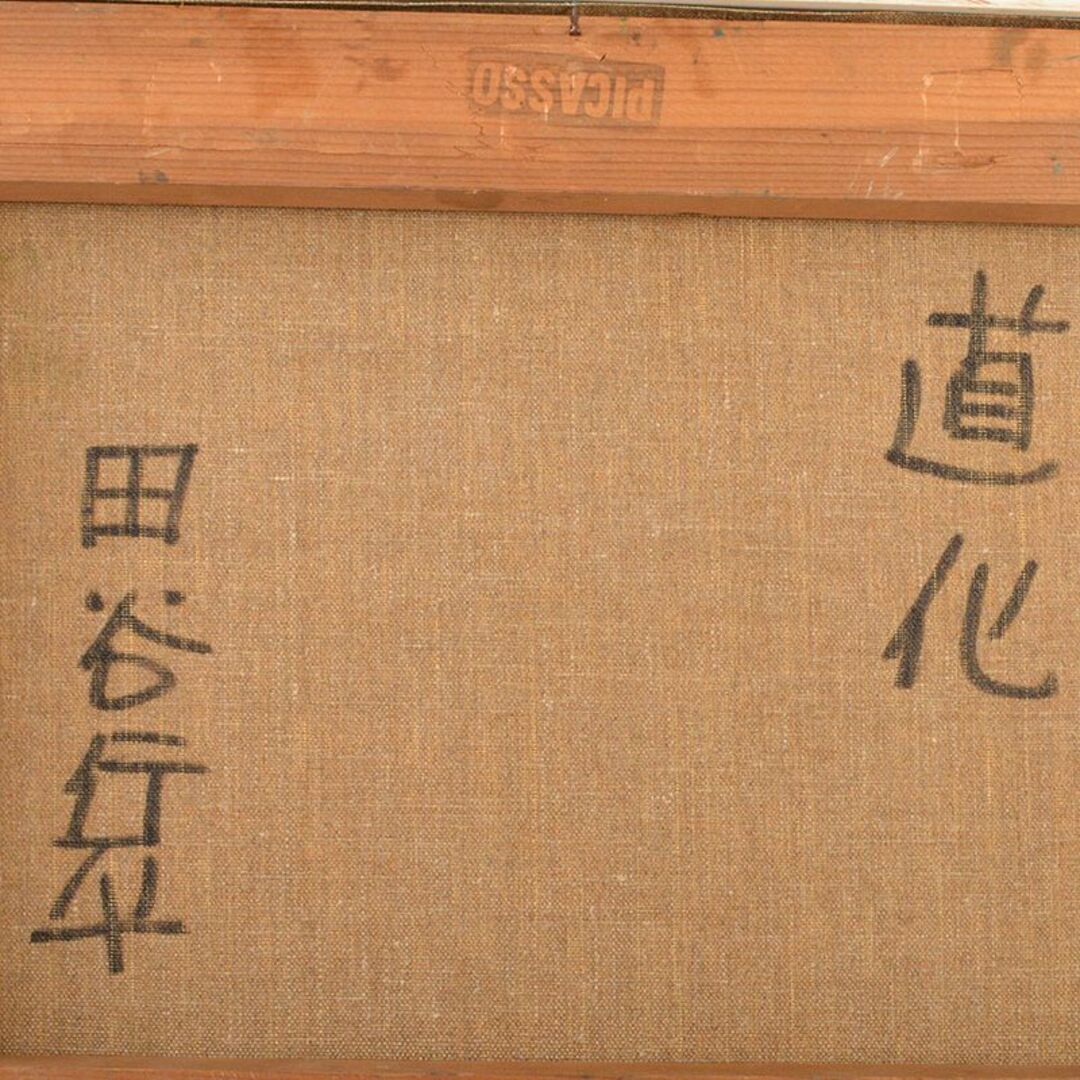 PICASSO
道化
田谷行平